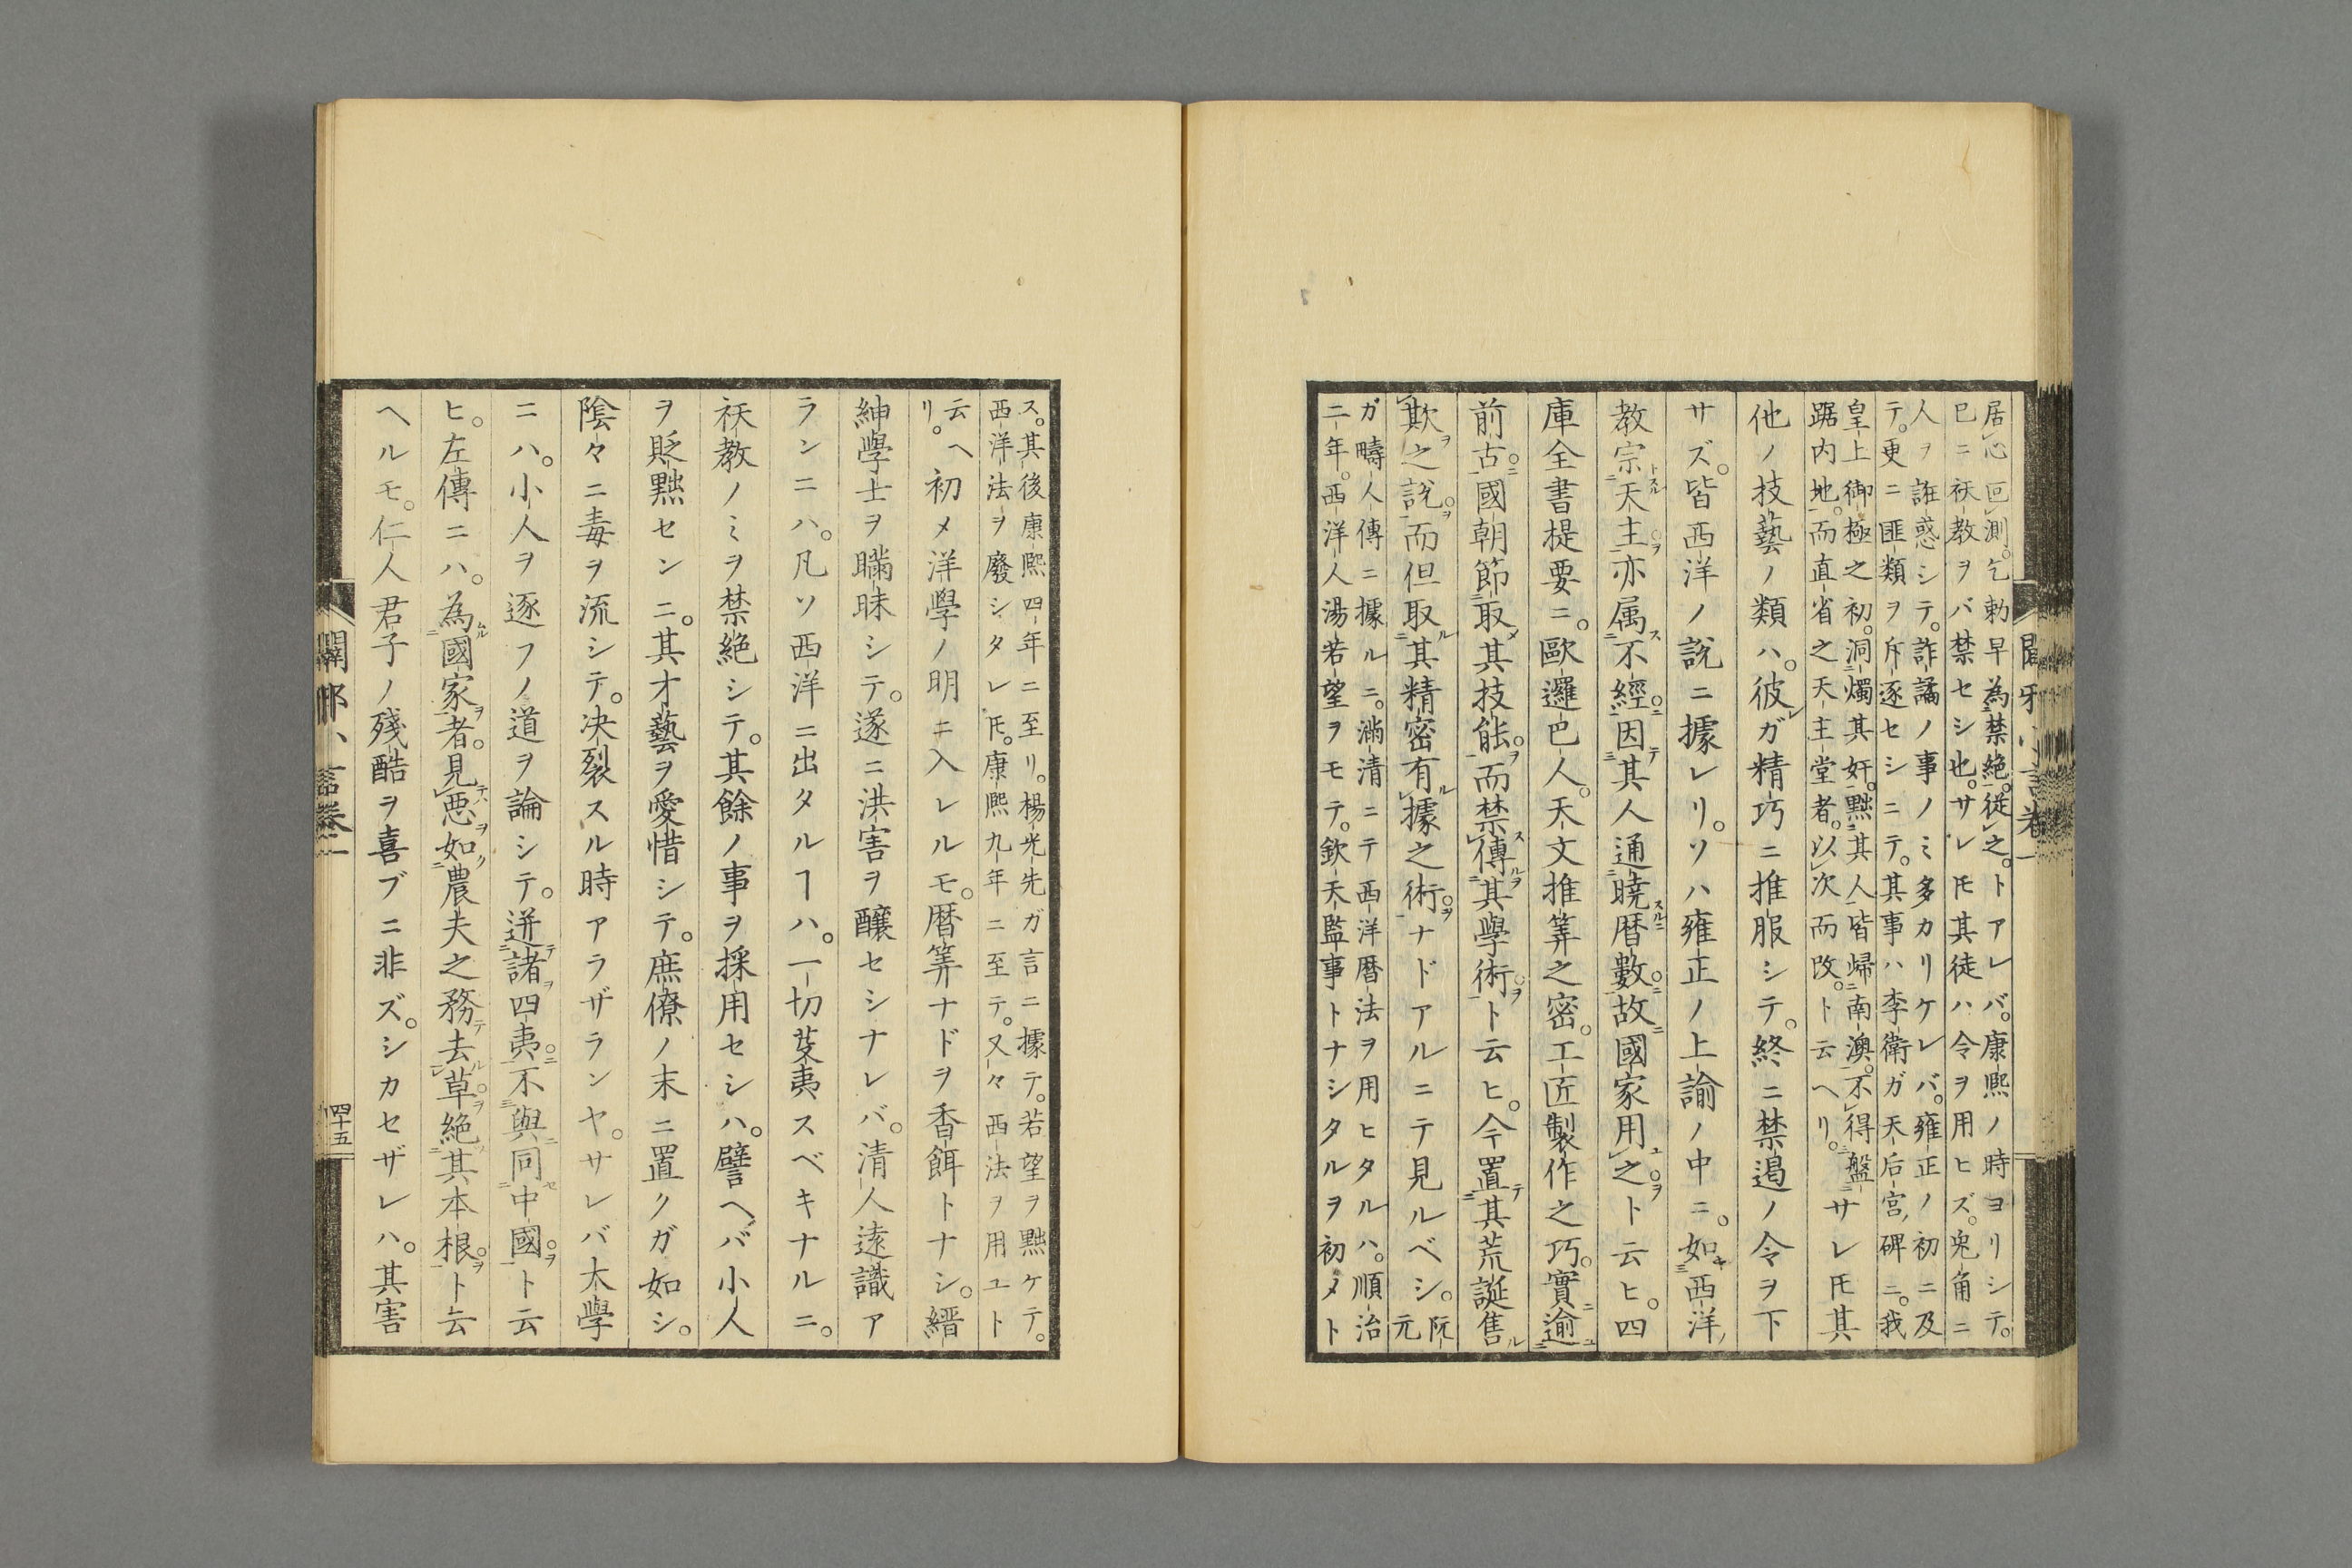 居心叵測。乞勅早為禁絶。従之。トアレバ。康熙ノ時ヨリシテ。
巳ニ祅教ヲバ禁セシ也。サレ𪜈其徒ハ令ヲ用ヒズ。兎角ニ
人ヲ誑惑シテ。詐譎ノ事ノミ多カリケレバ。雍正ノ初ニ及
テ。更ニ匪類ヲ斥逐セシニテ。其事ハ李衛ガ天后宮碑ニ。我
皇上御極之初。洞燭其奸。黜其人。皆歸南澳。不得盤
踞内地。而直省之天主堂者。以次而改。ト云ヘリ。
サレ𪜈其
他ノ技藝ノ類ハ。彼ガ精巧ニ推服シテ。終ニ禁遏ノ令ヲ下
サズ。皆西洋ノ説ニ據レリ。ソハ雍正ノ上諭ノ中ニ。如西洋
教宗天主亦属不經因其人通曉暦數故國家用之ト云ヒ。四
庫全書提要ニ。歐邏巴人。天文推筭之密。工匠製作之巧。實逾
前古。國朝節取其技能。而禁傳其學術。ト云ヒ。今置其荒誕售
欺之説。而但取其精密有據之術。ナドアルニテ見ルベシ。
阮元
ガ疇人傳ニ據ルニ。滿清ニテ西洋暦法ヲ用ヒタルハ。順治
二年。西洋人湯若望ヲモテ。欽天監事トナシタルヲ初メト
闢邪小言卷二
ス。其後康熙四年ニ至リ。楊光先ガ言ニ據テ。若望ヲ黜ケテ。
西洋法ヲ廢シタレ𪜈。康熙九年ニ至テ。又々西法ヲ用ユト
云ヘリ。
初メ洋學ノ明ニ入レルモ。暦筭ナドヲ香餌トナシ。縉
紳學士ヲ瞞昧シテ。遂ニ洪害ヲ釀セシナレバ。清人遠識ア
ランニハ。凡ソ西洋ニ出タルヿハ。一切芟夷スベキナルニ。
祅教ノミヲ禁絶シテ。其餘ノ事ヲ採用セシハ。譬ヘバ小人
ヲ貶黜センニ。其才藝ヲ愛惜シテ。庶僚ノ末ニ置クガ如シ。
陰々ニ毒ヲ流シテ。决裂スル時アラザランヤ。サレバ大學
ニハ。小人ヲ逐フノ道ヲ論シテ。迸諸四夷。不與同中國。ト云
ヒ。左傳ニハ。為國家者。見悪如農夫之務去草。絶其本根。ト云
ヘルモ。仁人君子ノ殘酷ヲ喜ブニ非ズ。シカセザレハ。其害
闢邪小言卷二
四十五